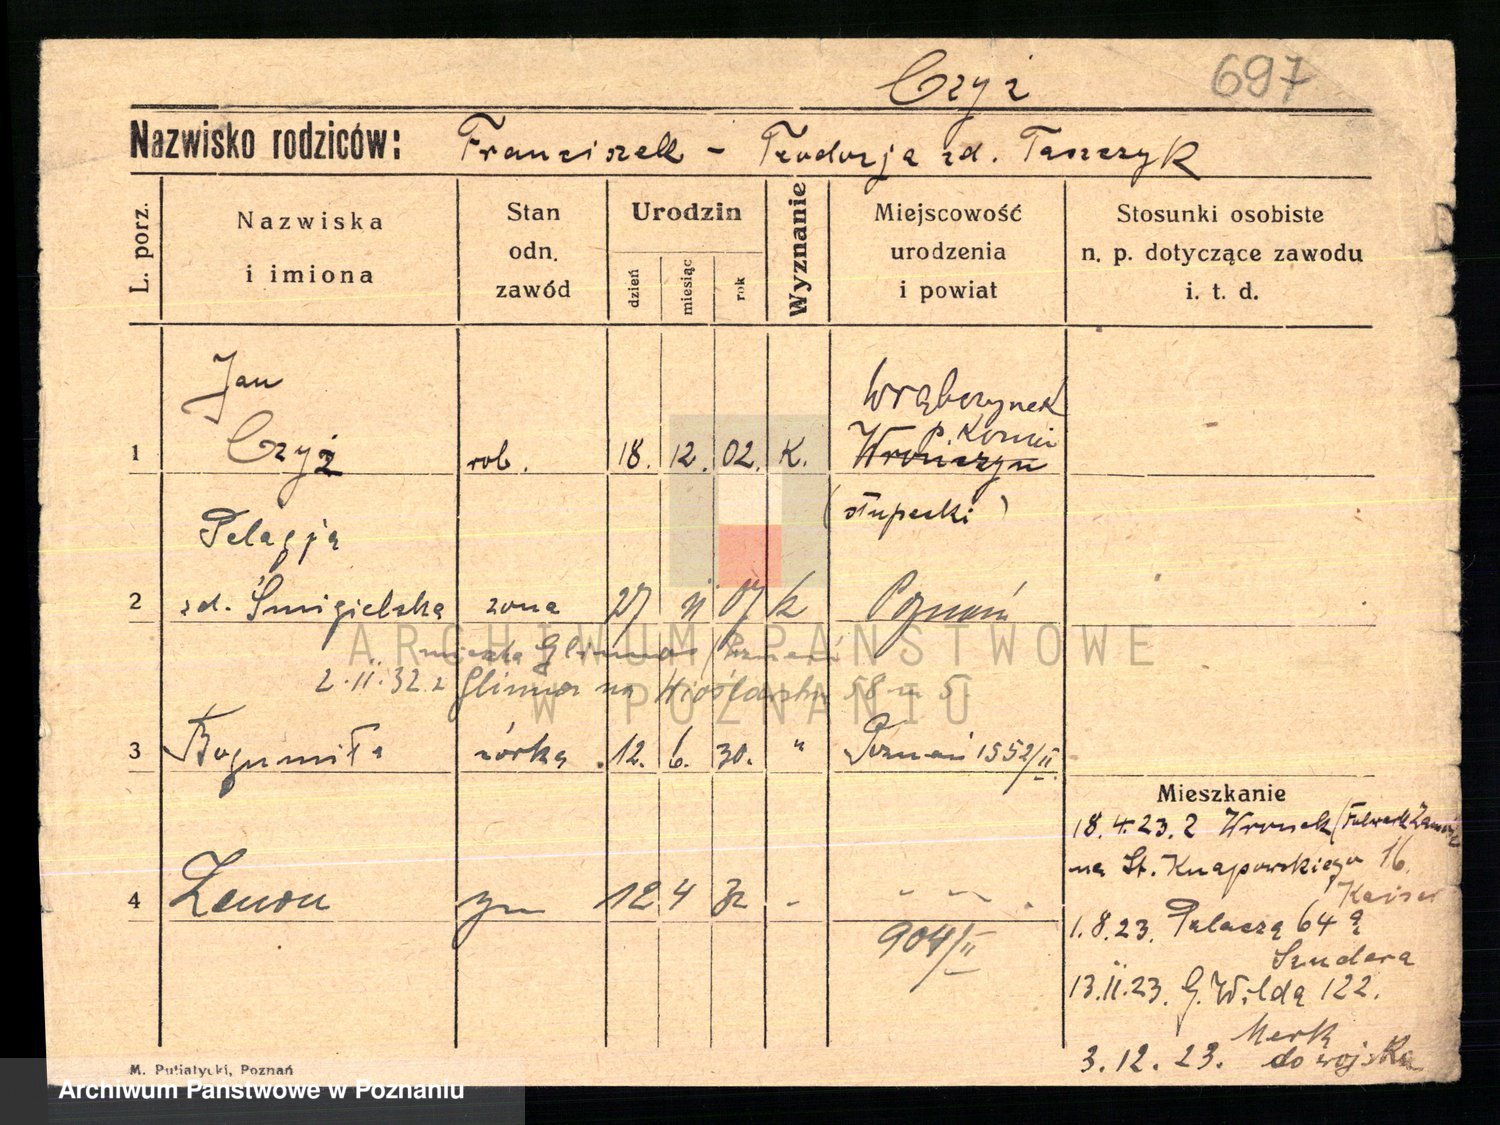 697
Czyż
Nazwisko rodziców: Franciszek - Teodozja zd. Taszczyk
L. porz.
Nazwiska i imiona
Stan odn. zawód
Urodzin
dzień miesiąc rok
Wyznanie
Miejscowość urodzenia i powiat
Stosunki osobiste n. p. dotyczące zawodu i. t. d.
Jan
Wrąbczynek
1 Czyż rob. 18. 12. 02. K. Wronczyn
(słupecki)
Pelagja
2 zd. Śmigielska żona 27 II 07 k Poznań
2.II.32 z Glinna na Wioślarska 58 m 5.
3 Bogumiła córka 12. 6. 30. " Poznań 1552/II
4 Zenon syn 12 4 32 - - -
904/II
Mieszkanie
18.4.23. z Wronek (Folwark
na St. Knapowskiego 16.
Kaiser
1.8.23. Palacza 64 a
Szudera
13.II.23. G. Wilda 122.
Merk
3.12.23. do wojska
M. Putiatycki, Poznań
ARCHIWUM PAŃSTWOWE
W POZNANIU
Archiwum Państwowe w Poznaniu